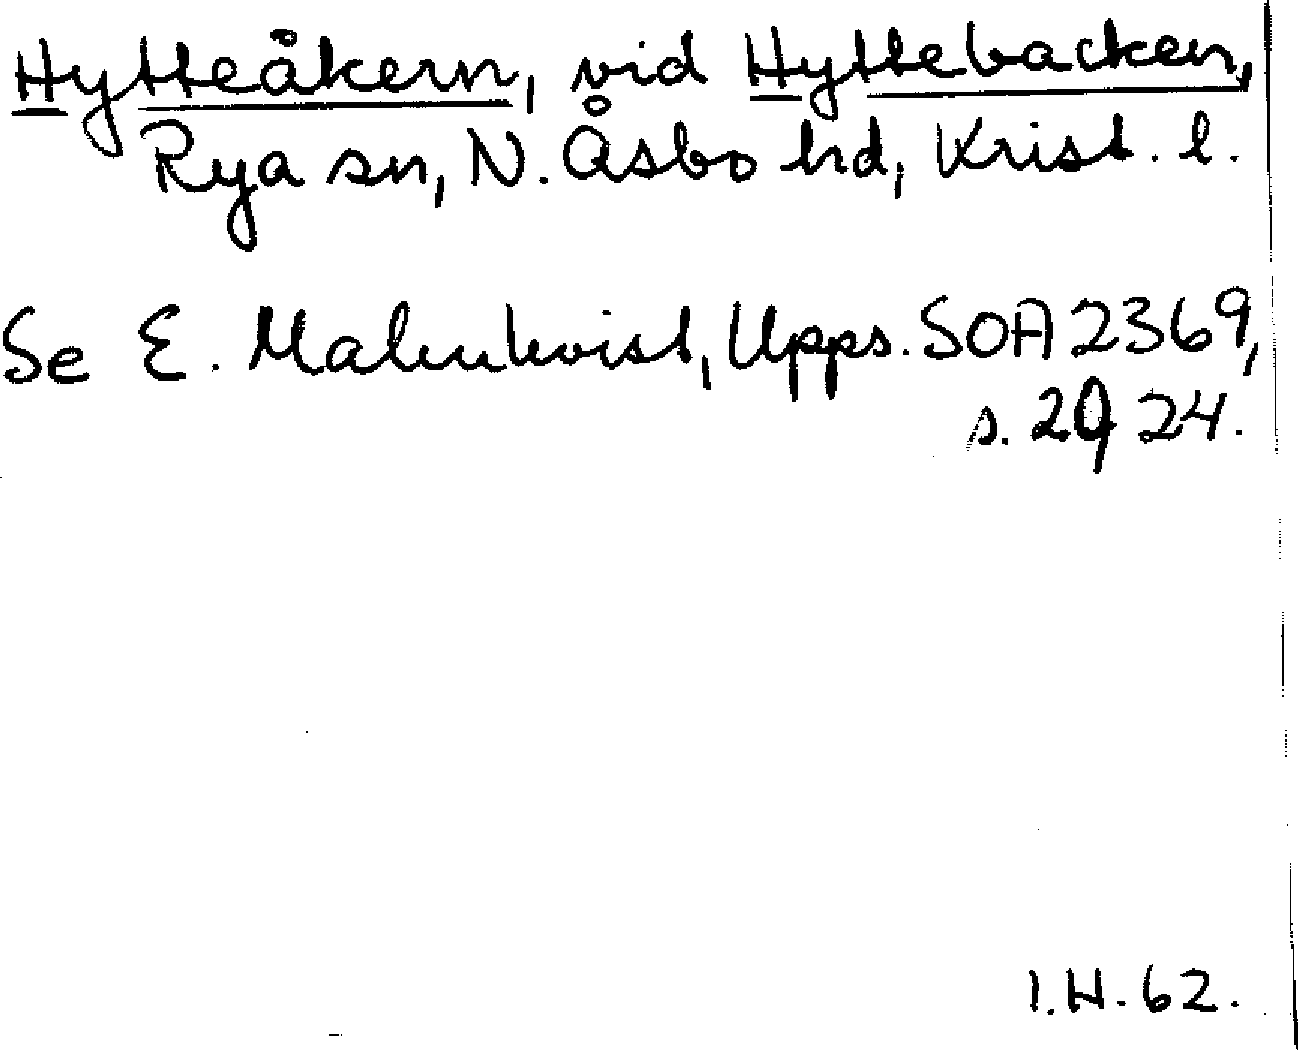 Hytteåkern, vid Hyttebacken,
Rya sn, N. Åsbo hd, Krist. l.
Se E. Malmkvist, Upps. SOA 2369,
s. 24.
I.H. 62.